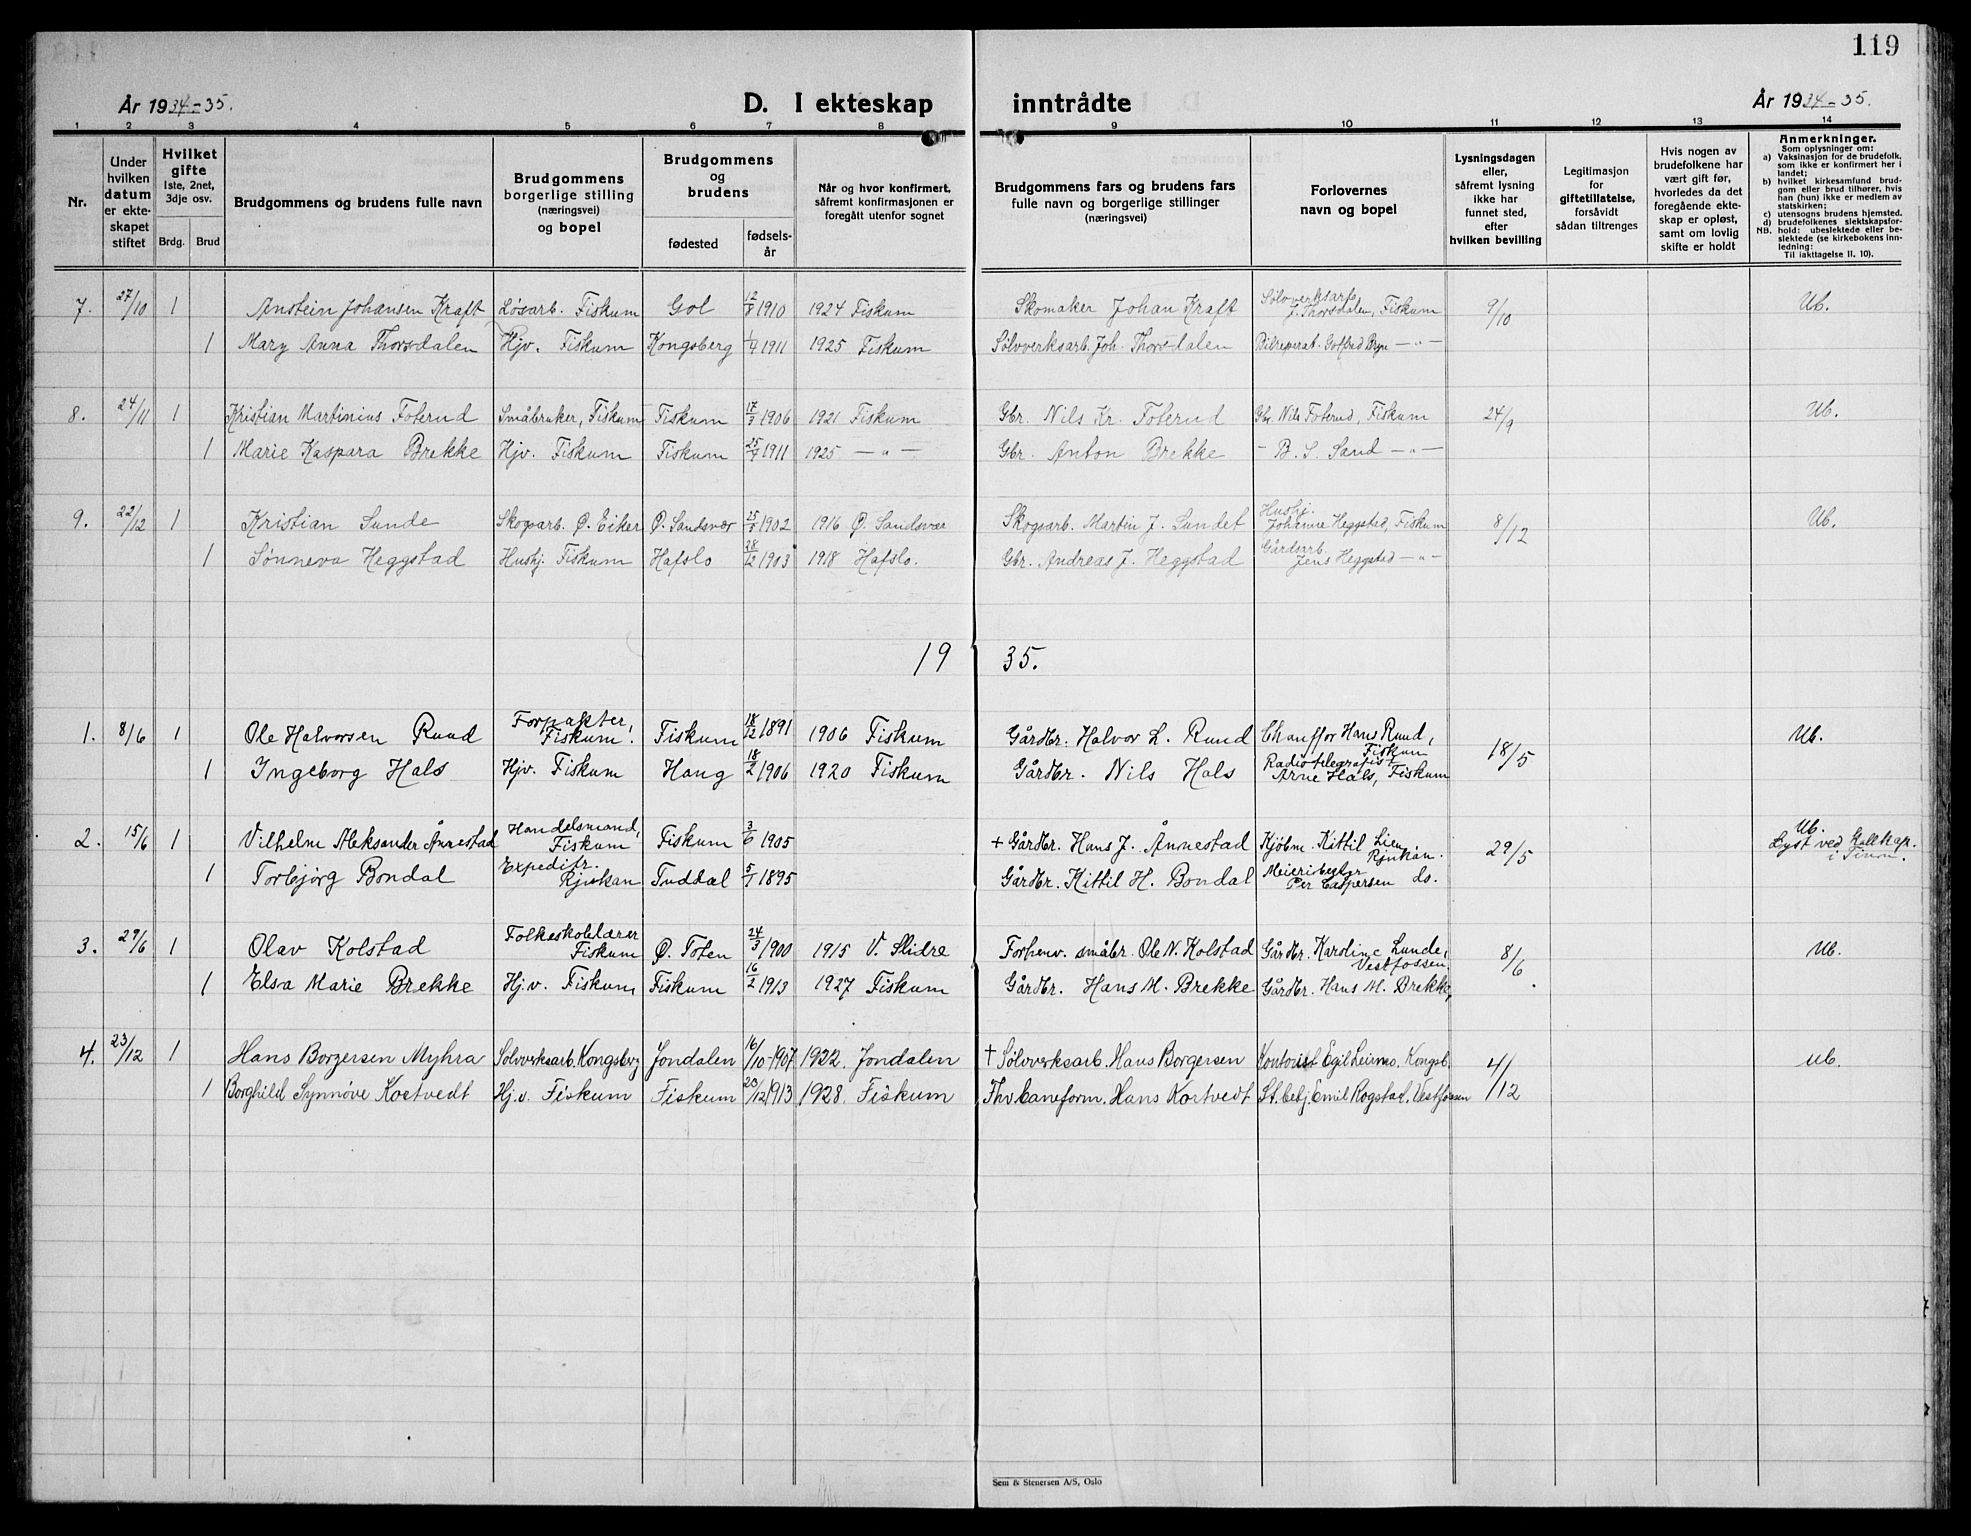 119
År 1934-35. D. I ekteskap inntrådte År 1934-35.
1 2 3 4 5 6 7 8 9 10 11 12 13 14
Nr.
Under hvilken datum er ekte-skapet stiftet
Hvilket gifte 1ste, 2net, 3dje osv.
Brdg. Brud
Brudgommens og brudens fulle navn
Brudgommens borgerlige stilling (næringsvei) og bopel
Brudgommens og brudens
fødested fødsels-år
Når og hvor konfirmert, såfremt konfirmasjonen er foregått utenfor sognet
Brudgommens fars og brudens fars fulle navn og borgerlige stillinger (næringsvei)
Forlovernes navn og bopel
Lysningsdagen eller, såfremt lysning ikke har funnet sted, efter hvilken bevilling
Legitimasjon for giftetillatelse, forsåvidt sådan tiltrenges
Hvis nogen av brudefolkene har vært gift før, hvorledes da det foregående ekte-skap er opløst, samt om lovlig skifte er holdt
Anmerkninger.
Som oplysninger om:
a) Vaksinasjon for de brudefolk, som ikke er konfirmert her i landet;
b) hvilket kirkesamfund brud-gom eller brud tilhører, hvis han (hun) ikke er medlem av statskirken;
c) utensogns brudens hjemsted.
d) brudefolkenes slektskapsfor-
NB. hold: ubeslektede eller be-slektede (se kirkebokens inn-ledning:
Til iakttagelse II. 10).
7. 27/10 1 Anstein Johansen Kraft Løsarb. Fiskum Gol 12/8 1910 1924 Fiskum Skomaker Johan Kraft Sølvverksarb. J. Thorsdalen, Fiskum 9/10 Ub.
1 Mary Anna Thorsdalen Hjv. Fiskum Kongsberg 1/4 1911 1925 Fiskum Sølvverksarb. Joh. Thorsdalen Bilreperat. Bryn —"—
8. 24/11 1 Kristian Martinius Foterud Småbruker, Fiskum Fiskum 17/3 1906 1921 Fiskum Gbr. Nils Kr. Foterud Gbr. Nils Foterud, Fiskum 24/9 Ub.
1 Marie Kaspara Brekke Hjv. Fiskum Fiskum 25/4 1911 1925 —"— Gbr. Anton Brekke — B. S. Sand —"—
9. 22/12 1 Kristian Sunde Skogsarb. Ø. Eiker Ø. Sandsvær 25/5 1902 1916 Ø. Sandsvær Skogsarb. Martin J. Sundet Hushj. Johanne Heggstad, Fiskum 8/12 Ub.
1 Sønneva Heggstad Hushj. Fiskum Hafslo 28/12 1903 1918 Hafslo. Gbr. Andreas J. Heggstad Gårdsarb. Jens Heggstad —"—
19 35.
1. 8/6 1 Ole Halvorsen Ruud Forpakter, Fiskum. Fiskum 18/12 1891 1906 Fiskum Gårdbr. Halvor L. Ruud Chauffør Hans Ruud, Fiskum 18/5 Ub.
1 Ingeborg Hals Hjv. Fiskum Haug 18/2 1906 1920 Fiskum Gårdbr. Nils Hals Radiotelegrafist Arne Hals, Fiskum
2. 15/6 1 Vilhelm Aleksander Ånnestad Handelsmand, Fiskum Fiskum 3/6 1905 + Gårdbr. Hans J. Ånnestad Kjøbm. Kittil Lien, Rjukan. 29/5 Ub. Lyst ved
1 Torbjørg Bondal Expeditr. Rjukan Tuddal 5/1 1895 Gårdbr. Kittil H. Bondal Meieribestyr Per Caspersen do.
3. 29/6 1 Olav Kolstad Folkeskolelærer Fiskum Ø. Toten 24/3 1900 1915 V. Slidre Forhenv. småbr. Ole N. Kolstad Gårdbr. Kardine Lunde, Vestfossen. 8/6 Ub.
1 Elsa Marie Brekke Hj.v. Fiskum Fiskum 16/2 1913 1927 Fiskum Gårdbr. Hans M. Brekke Gårdbr. Hans M. Brekke,
4. 23/12 1 Hans Borgersen Myhra Sølvverksarb. Kongsberg Jondalen 16/10-1907 1922. Jondalen † Sølvverksarb. Hans Borgersen Kontorist Egil Leirnes, Kongsb. 4/12 Ub.
1 Borghild Synnøve Kortvedt Hj.v. Fiskum Fiskum 20/12 1913 1928. Fiskum Thv. baneform. Hans Kortvedt St.betj. Emil Rogstad, Vestfossen
Sem & Stenersen A/S, Oslo